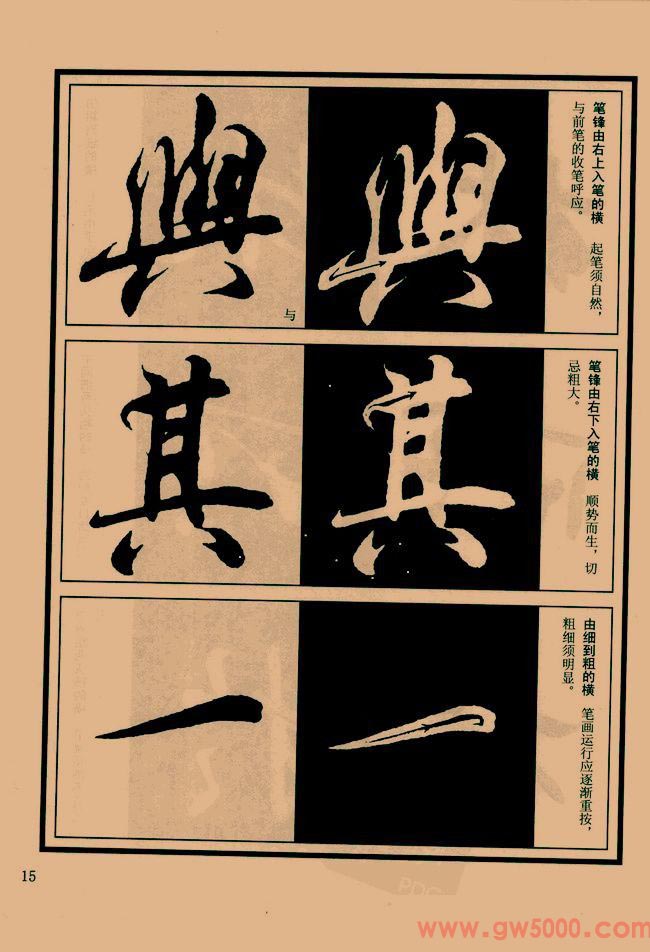 與
與
与
笔锋由右上入笔的横　起笔须自然，
与前笔的收笔呼应。
其
其
笔锋由右下入笔的横　顺势而生，切
忌粗大。
一
一
由细到粗的横　笔画运行应逐渐重按，
粗细须明显。
15
PDG
www.gw5000.com